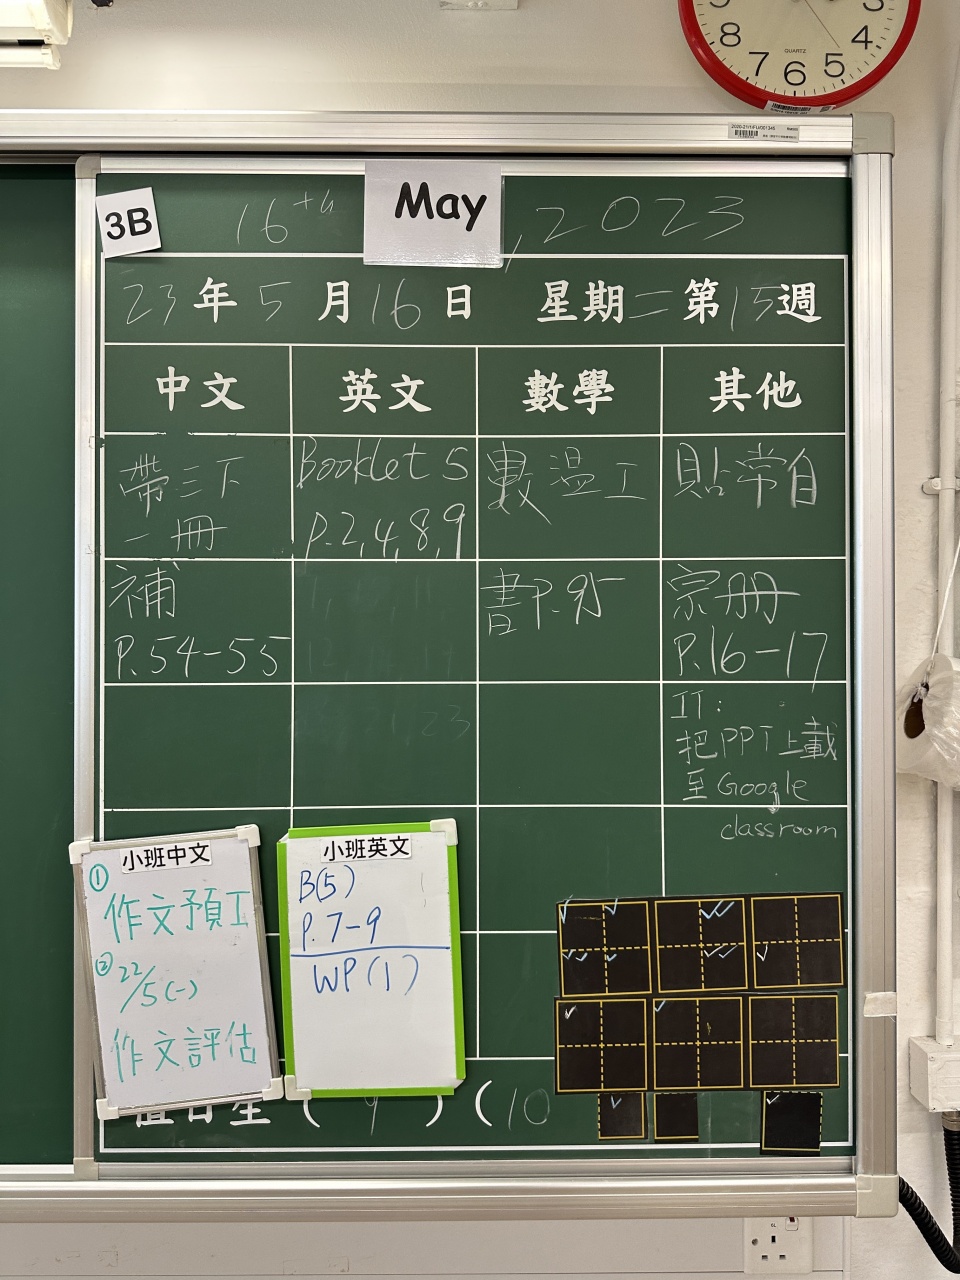 3 4 5 6 7 8 9
QUARTZ
3B
16th May, 2023
23年5月16日 星期二 第15週
中文 英文 數學 其他
帶三下
一冊
Booklet 5
P.2,4,8,9
數溫工
貼常自
補
P.54-55
書P.95
宗冊
P.16-17
IT:
把PPT上載
至Google
classroom
小班中文
①
作文預工
②
22/5(一)
作文評估
小班英文
B(5)
P.7-9
WP(1)
值日生(9)(10